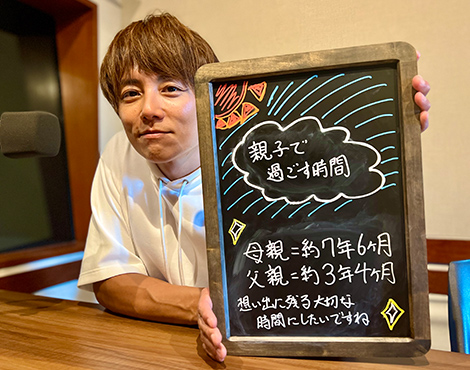 親子で
過ごす時間
母親=約7年6ヶ月
父親=約3年4ヶ月
想い出に残る大切な
時間にしたいですね